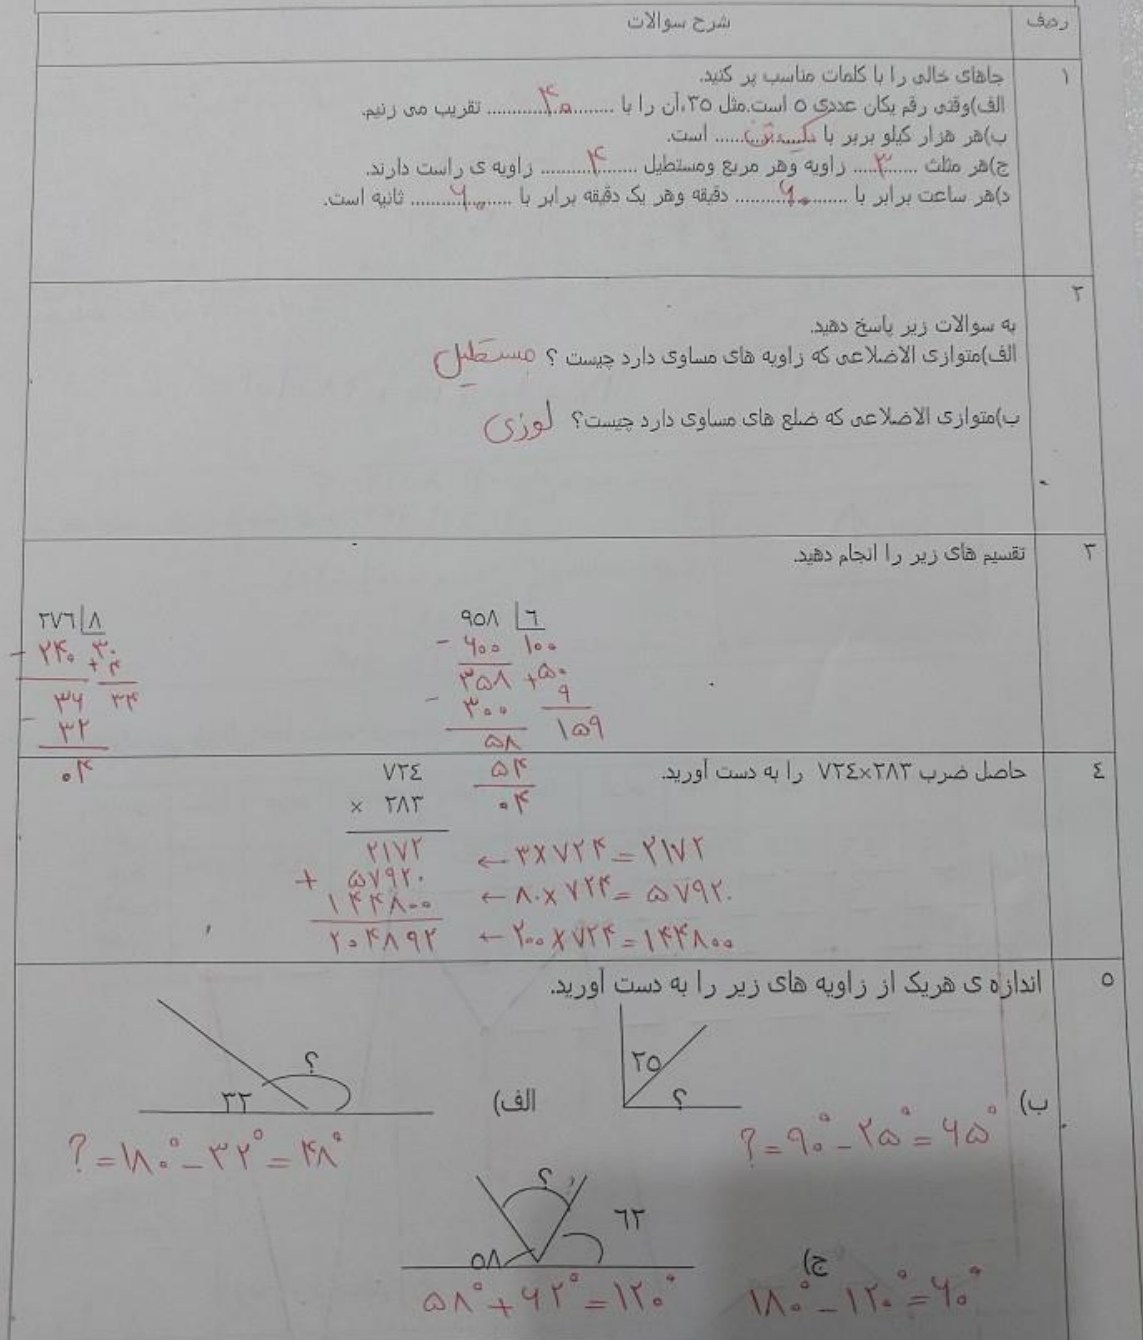 ردیف شرح سوالات
۱ جاهای خالی را با کلمات مناسب پر کنید.
الف)وقتی رقم یکان عددی ۵ است.مثل ۳۵،آن را با ........۴۰........ تقریب می زنیم.
ب)هر هزار کیلو بربر با یک تن...... است.
ج)هر مثلث ......۳...... زاویه وهر مربع ومستطیل ........۴........ زاویه ی راست دارند.
د)هر ساعت برابر با ........۶۰........ دقیقه وهر یک دقیقه برابر با ........۶۰........ ثانیه است.
۲
به سوالات زیر پاسخ دهید.
الف)متوازی الاضلاعی که زاویه های مساوی دارد چیست ؟ مستطیل
ب)متوازی الاضلاعی که ضلع های مساوی دارد چیست؟ لوزی
۳ تقسیم های زیر را انجام دهید.
۹۵۸ ۶
- ۶۰۰ ۱۰۰
۳۵۸ + ۵۰
- ۳۰۰ ۹
۵۸ ۱۵۹
۵۴
۰۴
۲۷۶ ۸
- ۲۴۰ ۳۰
+ ۴
۳۶ ۳۴
- ۳۲
۰۴
۴ حاصل ضرب ۷۲۴×۲۸۳ را به دست آورید.
۷۲۴
× ۲۸۳
۲۱۷۲ ← ۳×۷۲۴=۲۱۷۲
+ ۵۷۹۲۰ ← ۸۰×۷۲۴=۵۷۹۲۰
۱۴۴۸۰۰ ← ۲۰۰×۷۲۴=۱۴۴۸۰۰
۲۰۴۸۹۲
۵ اندازه ی هریک از زاویه های زیر را به دست آورید.
ب) ۲۵ ؟
?=۹۰°-۲۵°=۶۵°
الف) ۳۲ ؟
?=۱۸۰°-۳۲°=۴۸°
ج) ۵۸ ؟ ۶۲
۵۸°+۶۲°=۱۲۰° ۱۸۰°-۱۲۰°=۶۰°